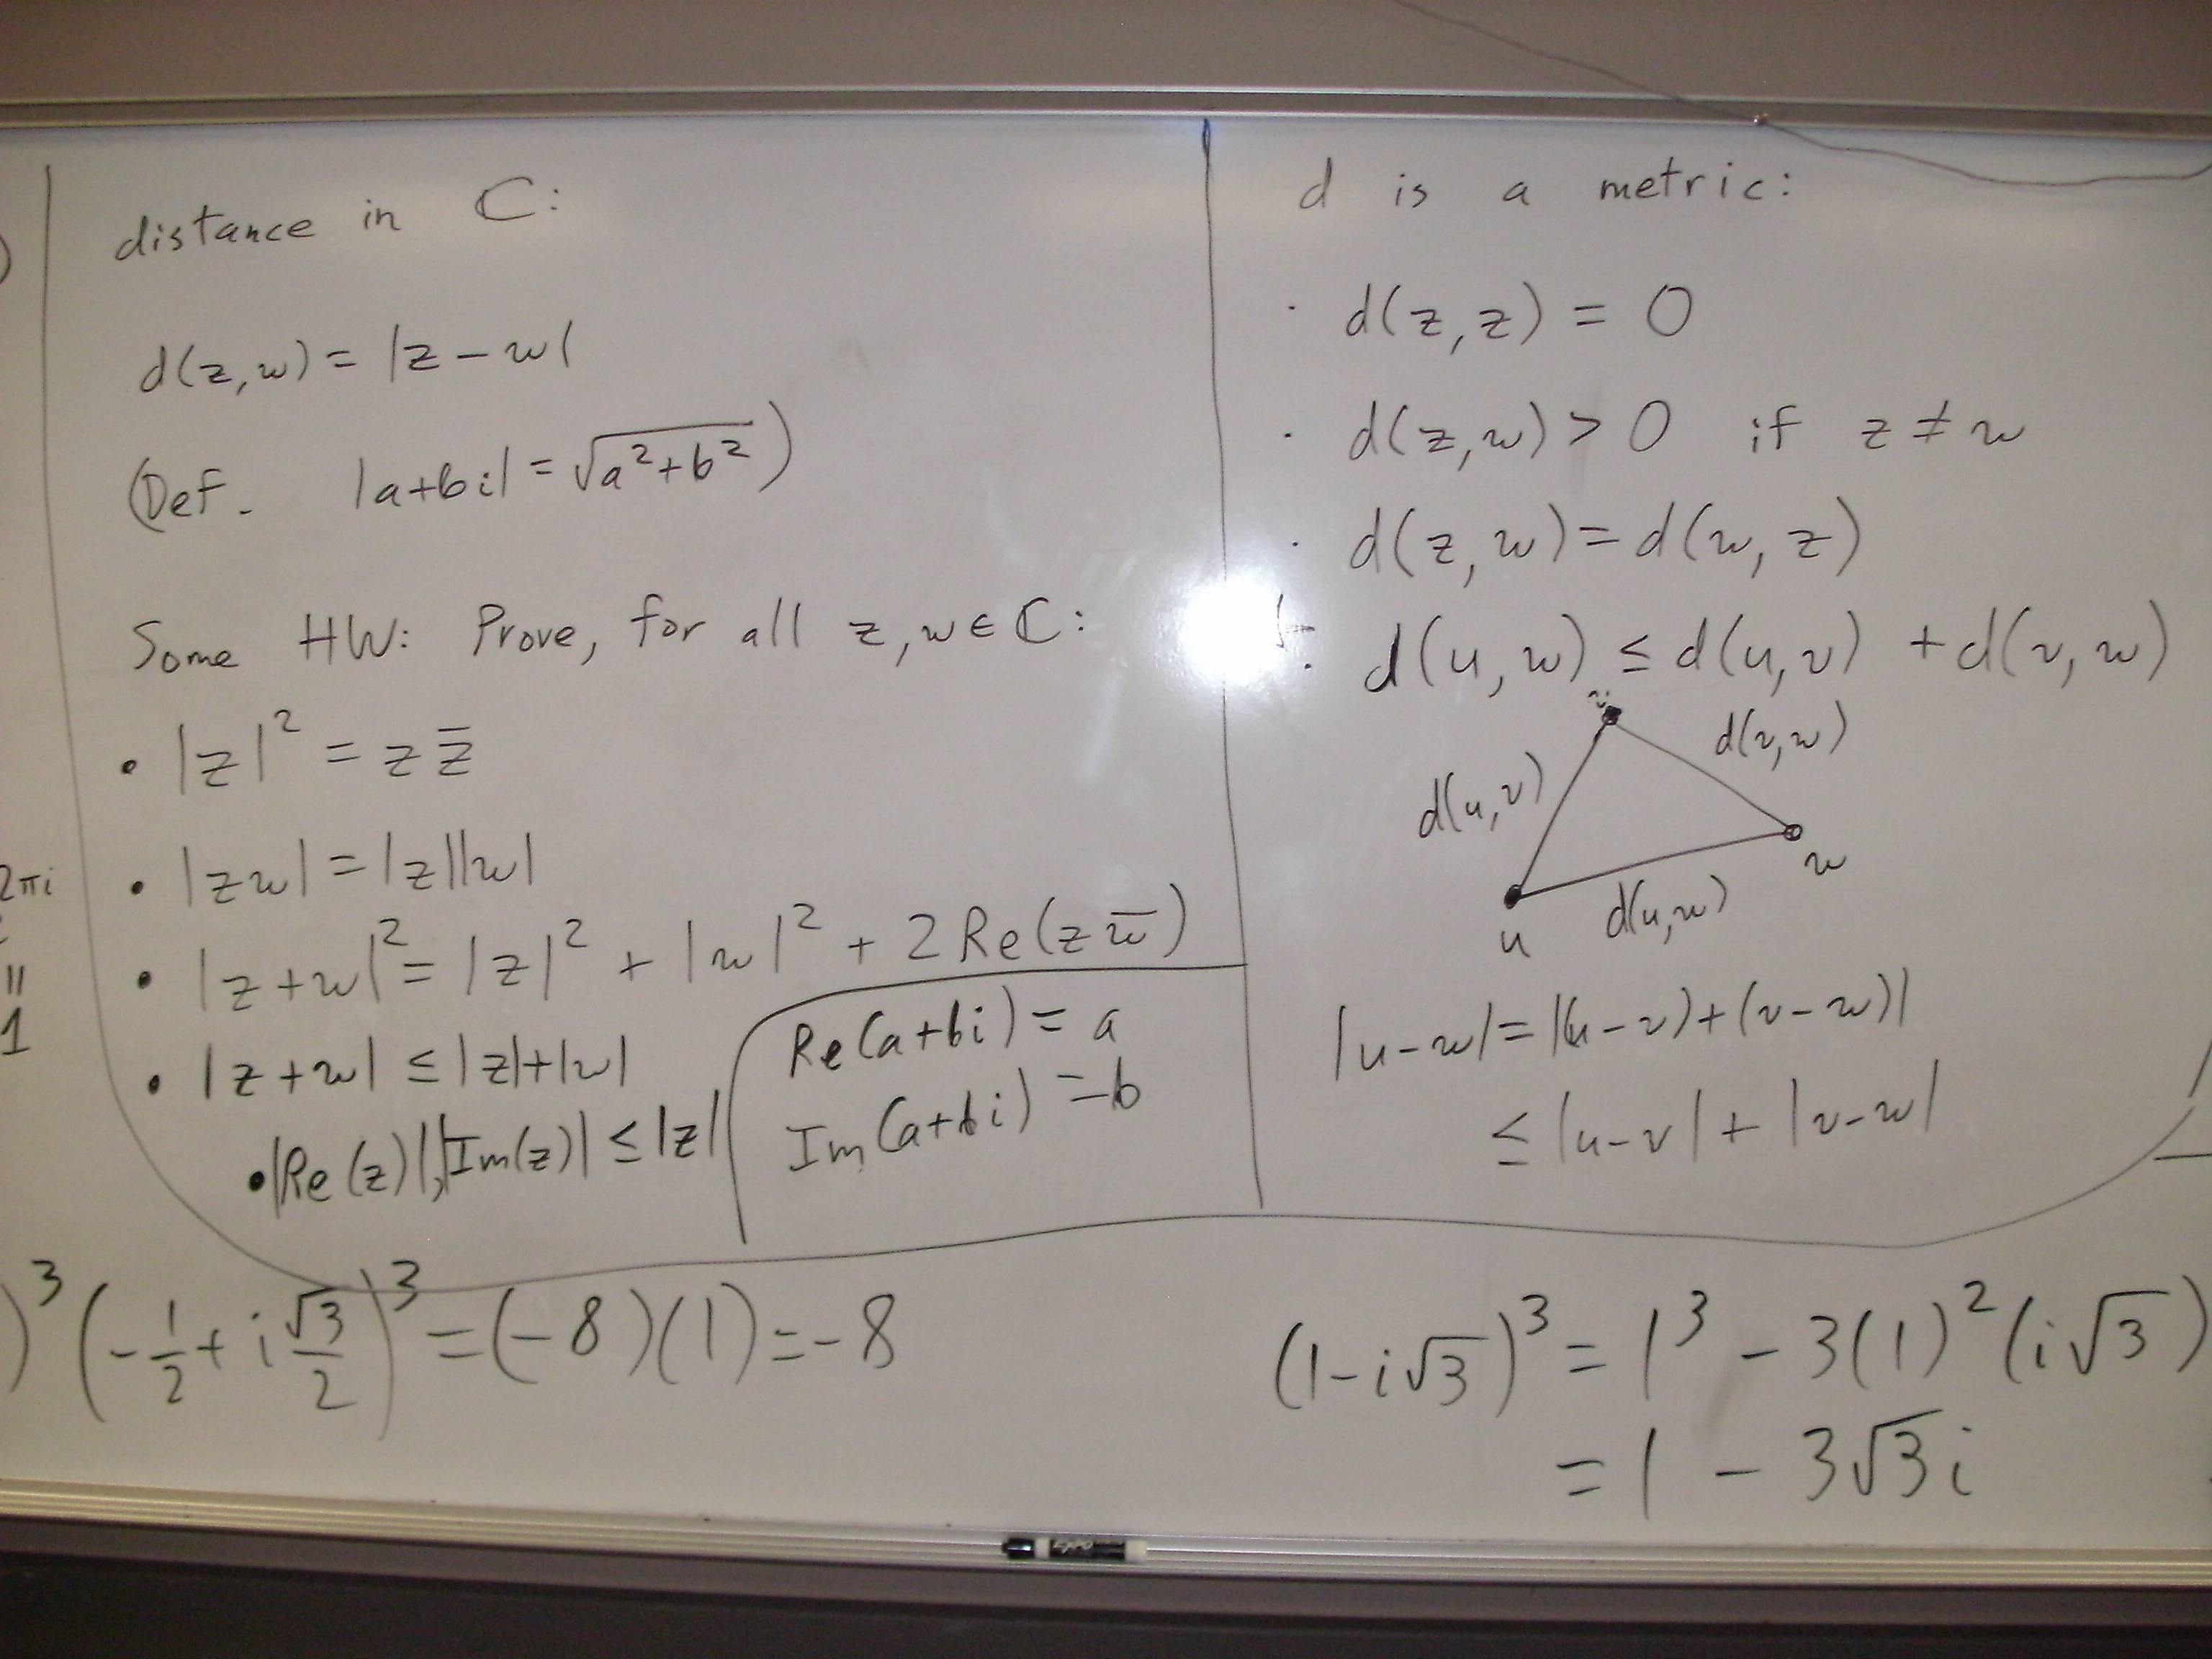 distance in ℂ:
d(z,w) = |z - w|
(Def. |a+bi| = √(a²+b²))
Some HW: Prove, for all z,w ∈ ℂ:
• |z|² = z z̄
• |zw| = |z||w|
• |z+w|² = |z|² + |w|² + 2 Re(z w̄)
• |z+w| ≤ |z|+|w|
• |Re(z)|, |Im(z)| ≤ |z|
Re(a+bi) = a
Im(a+bi) = b
d is a metric:
· d(z,z) = 0
· d(z,w) > 0 if z ≠ w
· d(z,w) = d(w,z)
· d(u,w) ≤ d(u,v) + d(v,w)
v
d(v,w)
d(u,v)
w
d(u,w)
u
|u-w| = |(u-v)+(v-w)|
≤ |u-v| + |v-w|
2πi
||
1
)³ (-1/2 + i √3/2)³ = (-8)(1) = -8
(1-i√3)³ = 1³ - 3(1)²(i√3)
= 1 - 3√3 i
expo